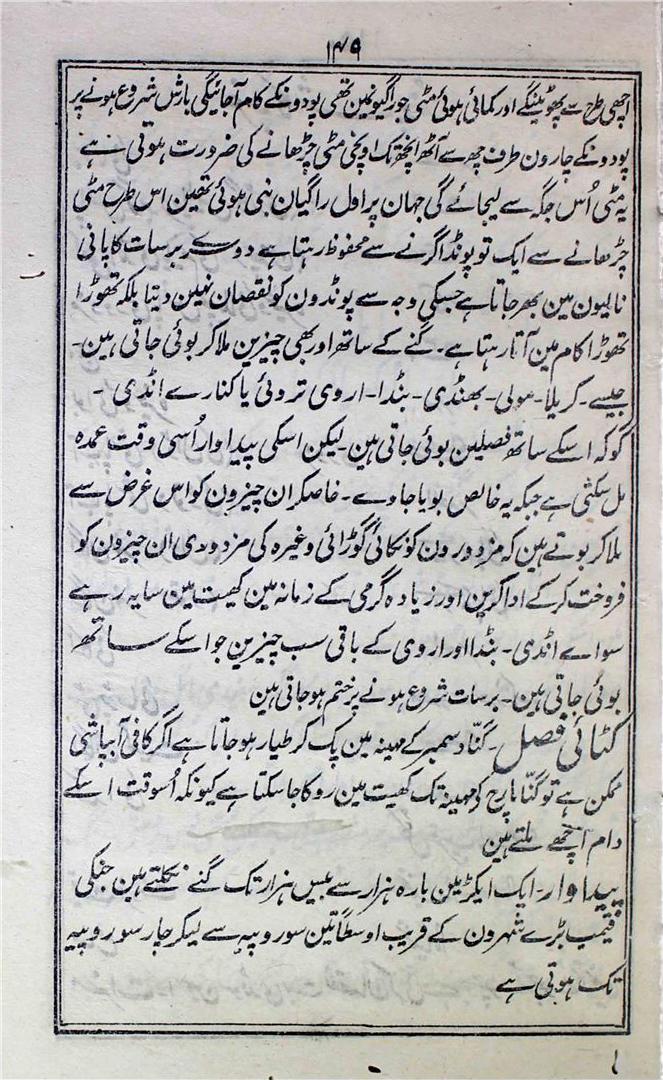 ۱۴۹
اچھی طرح سے پھوٹینگے اور کمائی ہوئی مٹی جو راگیونمین تھی پودونکے کام آجائیگی بارش شروع ہونے پر
پودونکے چارون طرف چھ سے آٹھ انچھ تک اونچی مٹی چڑھانے کی ضرورت ہوتی ہے
یہ مٹی اُس جگہ سے لیجائے گی جہان پر اول راگیان بنی ہوئی تھین اس طرح مٹی
چڑھانے سے ایک تو پونڈا گرنے سے محفوظ رہتا ہے دوسرے برسات کا پانی
نالیون مین بھر جاتا ہے جسکی وجہ سے پونڈون کو نقصان نہین دیتا بلکہ تھوڑا
تھوڑا کام مین آتا رہتا ہے۔ گنے کے ساتھ اور بھی چیزین ملاکر بوئی جاتی ہین۔
جیسے۔ کریلا۔ مولی۔ بھنڈی۔ بنڈا۔ اروی تروئی یا کنارے انڈی ۔
گو کہ اسکے ساتھ فصلین بوئی جاتی ہین۔ لیکن اسکی پیداوار اُسی وقت عمدہ
مل سکتی ہے جبکہ یہ خالص بویا جاوے۔ خاصکر ان چیزون کو اس غرض سے
ملا کر بوتے ہین کہ مزدورون کو نکائی گوڑائی وغیرہ کی مزدوری ان چیزون کو
فروخت کر کے ادا کرین اور زیادہ گرمی کے زمانہ مین کھیت مین سایہ رہے
سواے انڈی۔ بنڈا اور اروی کے باقی سب چیزین جو اسکے ساتھ
بوئی جاتی ہین۔ برسات شروع ہونے پر ختم ہو جاتی ہین
کٹائی فصل۔ گنّا دسمبر کے مہینہ مین پک کر طیار ہو جاتا ہے اگر کافی آبپاشی
ممکن ہے تو گنّا مارچ کے مہینہ تک کھیت مین روکا جا سکتا ہے کیونکہ اُسوقت اسکے
دام اچھے ملتے ہین
پیداوار۔ ایک ایکڑ مین بارہ ہزار سے بیس ہزار تک گنے نکلتے ہین جنکی
قیمت بڑے شہرون کے قریب اوسطاً تین سو روپیہ سے لیکر چار سو روپیہ
تک ہوتی ہے